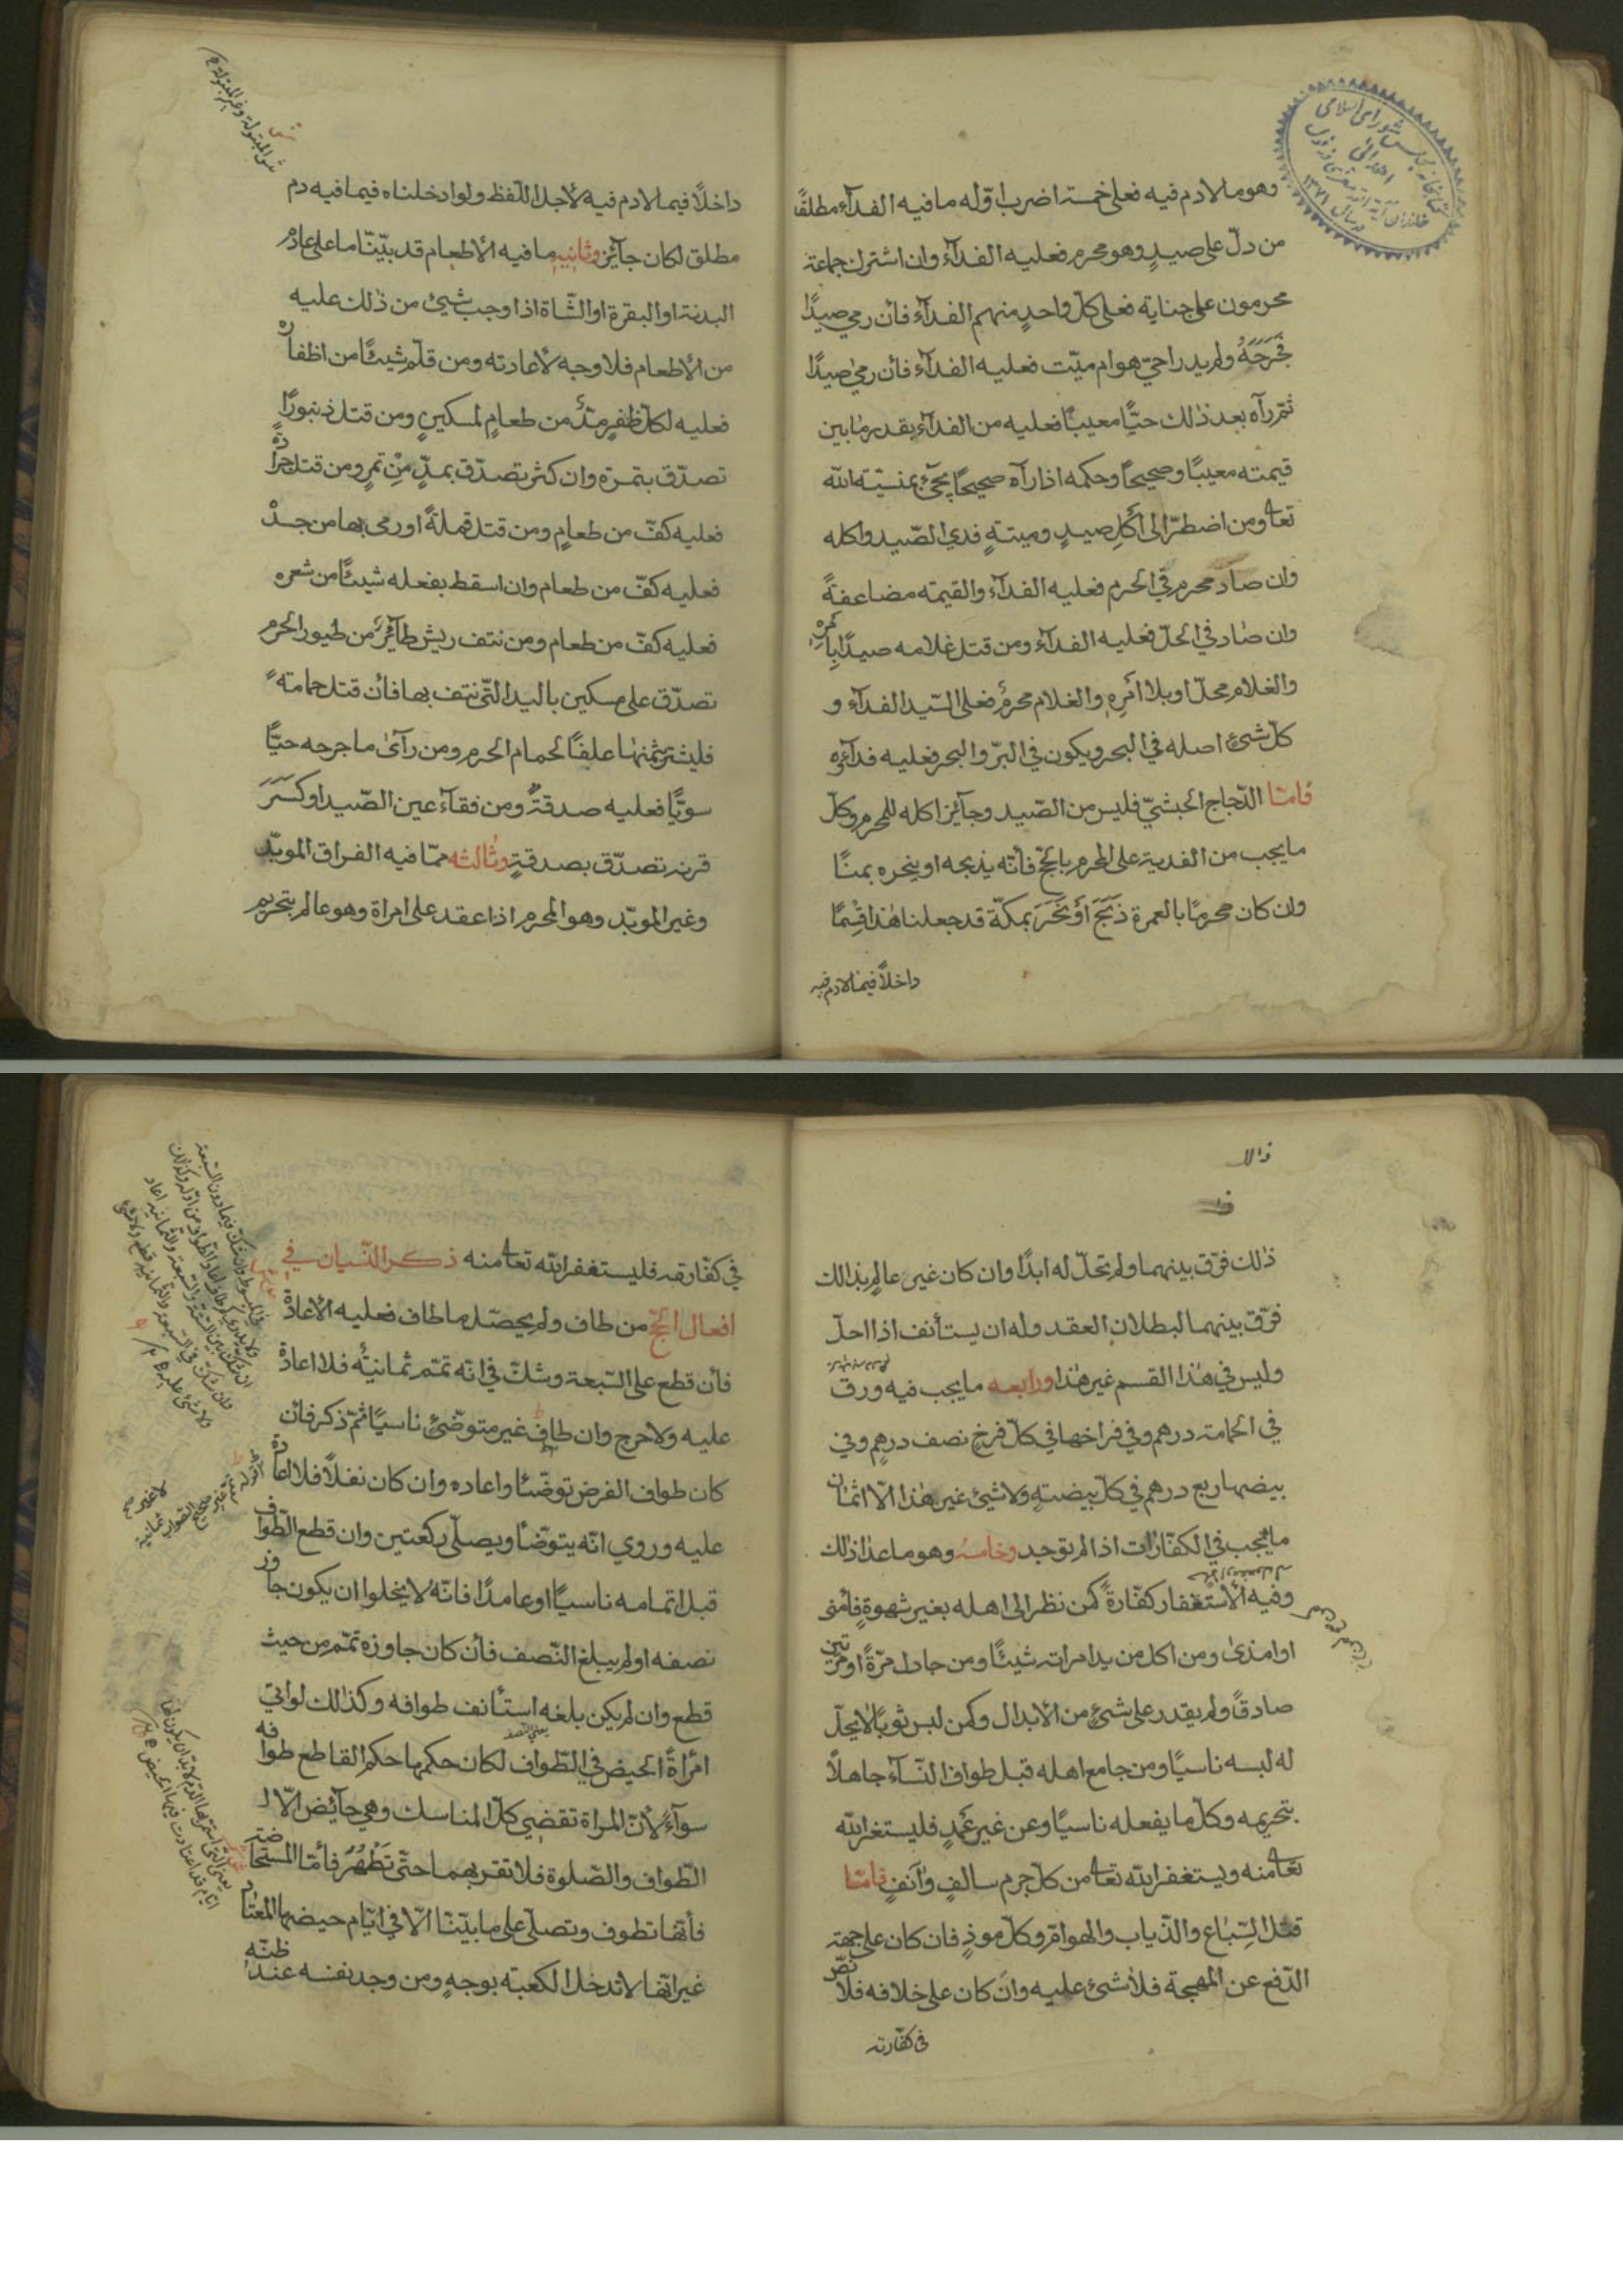 وهو ما لا دم فيه فعلى خمسة اضرب اوّله ما فيه الفدآء مطلقًا
من دلّ على صيدٍ وهو محرم فعليه الفدآء وان اشترك جماعة
محرمون على جناية فعلى كلّ واحدٍ منهم الفدآء فأن رمى صيدًا
فَجَرَحَهُ ولم يدر احىّ هو ام ميّت فعليه الفدآء فأن رمى صيدًا
ثمّ رآه بعد ذٰلك حيًّا معيبًا فعليه من الفدآء بقدر ما بين
قيمته معيبًا وصحيحًا وحكمه اذا رآه صحيحًا يجئ بمشيّة الله
تعا ومن اضطرّ الى أكلِ صيدٍ وميتةٍ فدى الصّيد واكله
وان صاد محرم في الحرم فعليه الفدآء والقيمة مضاعفةً
وان صاد في الحلّ فعليه الفدآء ومن قتل غلامه صيدًا بأمره
والغلام محلّ او بلا امرِه والغلام محرمٌ فعلى السّيد الفدآء و
كلّ شئ اصله في البحر ويكون في البرّ والبحر فعليه فدآؤه
فامّا الدّجاج الحبشيّ فليس من الصّيد وجآئز اكله للمحرم وكلّ
ما يجب من الفدية على المحرم بالحجّ فأنّه يذبحه او ينحره بمنًا
وان كان محرمًا بالعمرة ذَبَحَ أوْ نَحَرَ بمكّة قد جعلنا هٰذا قِسْمًا
داخلاً فيما لا دم فيه
داخلاً فيما لا دم فيه لأجل اللّفظ ولو ادخلناه فيما فيه دم
مطلق لكان جآئز وثانيه ما فيه الأطعام قد بيّنّا ما على عادم
البدنة او البقرة او الشّاة اذا وجب شيئ من ذٰلك عليه
من الأطعام فلا وجه لأعادته ومن قلّم شيئًا من اظفاره
فعليه لكلّ ظفرٍ مدٌّ من طعامٍ لمسكينٍ ومن قتل زنبورًا
تصدّق بتمرة وان كثر تصدّق بمدٍّ مِنْ تمرٍ ومن قتل جرادةً
فعليه كفّ من طعامٍ ومن قتل قملةً او رمى بها من جسده
فعليه كفّ من طعام وان اسقط بفعله شيئًا من شعره
فعليه كفّ من طعام ومن نتف ريش طآئرٍ من طيور الحرم
تصدّق على مسكين باليد الّتى نتف بها فأن قتل حمامة
فليشتر بثمنها علفًا لحمام الحرم ومن رآى ما جرحه حيًّا
سويًّا فعليه صدقةٌ ومن فقآء عين الصّيد او كَسَرَ
قرنه تصدّق بصدقةٍ وثالثه ممّا فيه الفراق المويّد
وغير المويّد وهو المحرم اذا عقد على امراة وهو عالم بتحريم
ذٰلك فرّق بينهما ولم تحلّ له ابدًا وان كان غير عالمٍ بذالك
فرّق بينهما لبطلان العقد وله ان يستأنف اذا احلّ
وليس في هٰذا القسم غير هٰذا ورابعه ما يجب فيه ورق
في الحمامة درهم وفي فراخها في كلّ فرخٍ نصف درهمٍ وفي
بيضها ربع درهم في كلّ بيضةٍ ولا شئ غير هٰذا الّا اثمان
ما يجب في الكفّارات اذا لم توجد وخامسه وهو ما عدا ذلك
وفيه الأستغفار كفّارةً كمن نظر الى اهله بغير شهوةٍ فأمنى
او امذى ومن اكل من يد امراته شيئًا ومن جادل مرّةً او مرّتين
صادقاً ولم يقدر على شئٍ من الأبدال وكمن لبس ثوبًا لا يحلّ
له لبسه ناسيًا ومن جامع اهله قبل طواف النّسآء جاهلاً
بتحريمه وكلّ ما يفعله ناسيًا وعن غير عَمْدٍ فليستغفر الله
تعا منه ويستغفر الله تعا من كلّ جرم سالفٍ وآنفٍ فامّا
قتل السّباع والذّياب والهوامّ وكلّ موذٍ فان كان على جهة
الدّفع عن المهجة فلا شئ عليه وان كان على خلافه فلا نصّ
فى كفّارته
في كفّارته فليستغفر الله تعا منه ذكر النّسيان في
افعال الحجّ من طاف ولم يحصّل ما طاف فعليه الأعادة
فأن قطع على السّبعة وشكّ في انّه تمّم ثمانيةً فلا اعادة
عليه ولا حرج وان طاف غير متوضّئ ناسيًا ثمّ ذكر فأن
كان طواف الفرض توضّئا واعاده وان كان نفلاً فلا اعادة
عليه وروي انّه يتوضّأ ويصلّى ركعتين وان قطع الطّواف
قبل اتمامه ناسيًا او عامدًا فانّه لا يخلوا ان يكون جاوز
نصفه او لم يبلغ النّصف فأن كان جاوزه تمّم من حيث
قطع وان لم يكن بلغه استأنف طوافه وكذٰلك لو اتى
امرأةً الحيض في الطّواف لكان حكمها حكم القاطع طوافه
سوآءً لأنّ المراة تقضي كلّ المناسك وهي حآئض الّا
الطّواف والصّلوة فلا تقربهما حتّى تَطْهُرَ فأمّا المستحاضة
فأنّها تطوف وتصلّى على ما بيّنّا الّا في ايّام حيضها المعتاد
غير انّها لا تدخل الكعبة بوجهٍ ومن وجد نفسه عند ظنّه